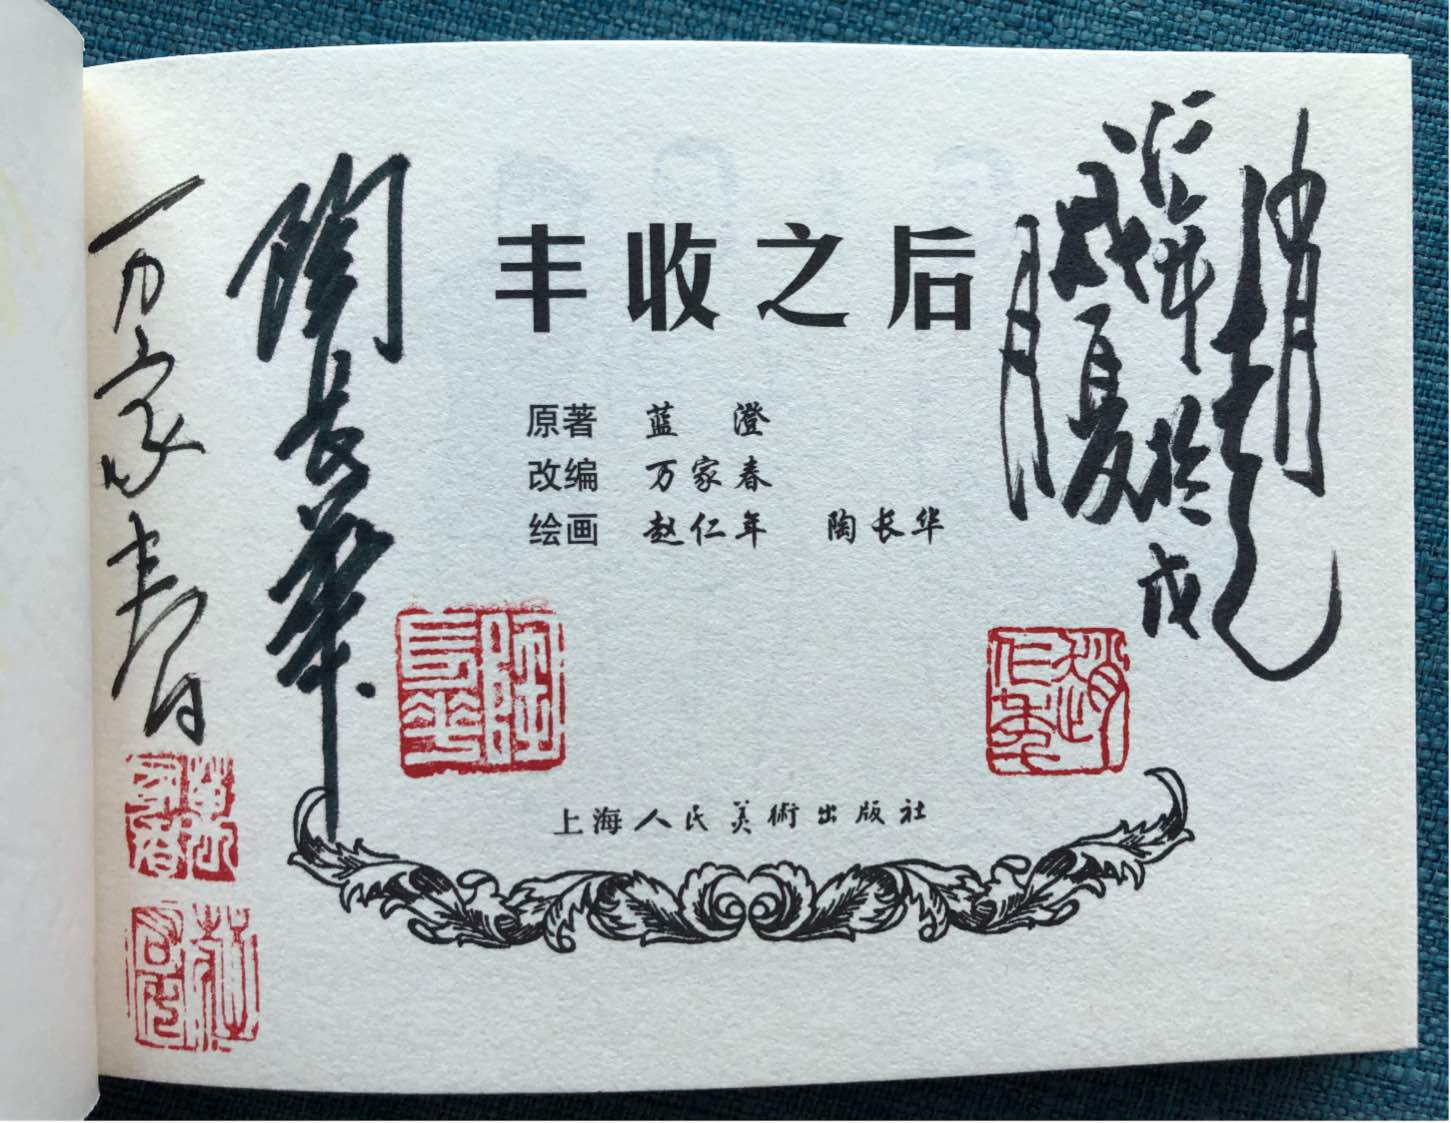 丰收之后
原著 蓝 澄
改编 万家春
绘画 赵仁年 陶长华
上海人民美術出版社
趙
仁年於戊
戌夏
陶長華
万家春
趙仁年
陶長華